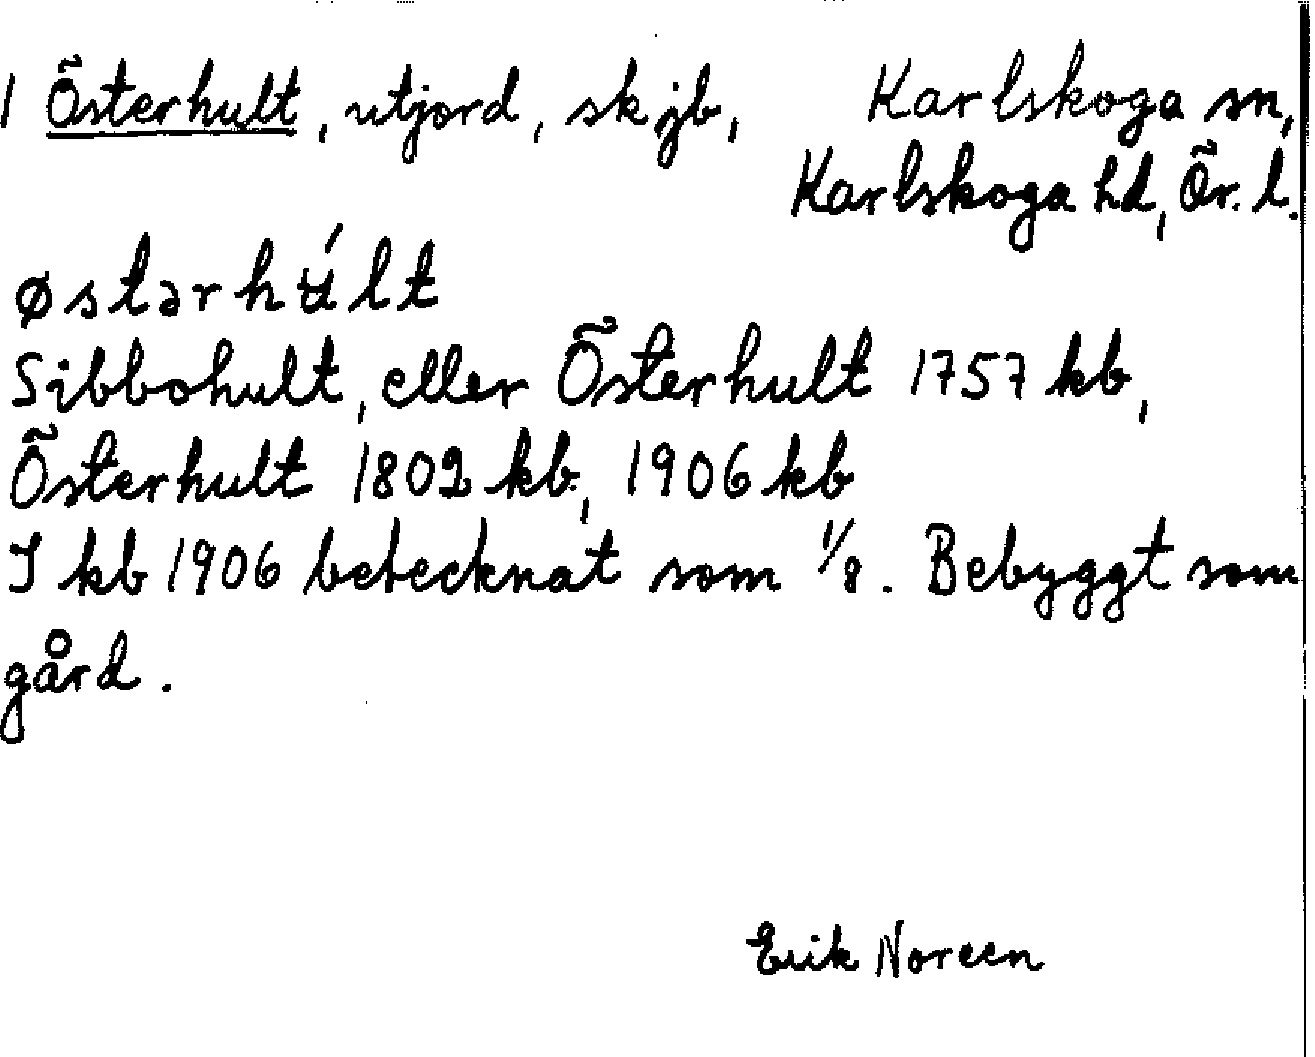 1 Österhult, utjord, sk jb, Karlskoga sn,
Karlskoga hd, Ör. l.
østərhʉ́lt
Sibbohult, eller Österhult 1757 kb,
Österhult 1802 kb, 1906 kb
I kb 1906 betecknat som 1/8. Bebyggt som
gård.
Erik Noreen